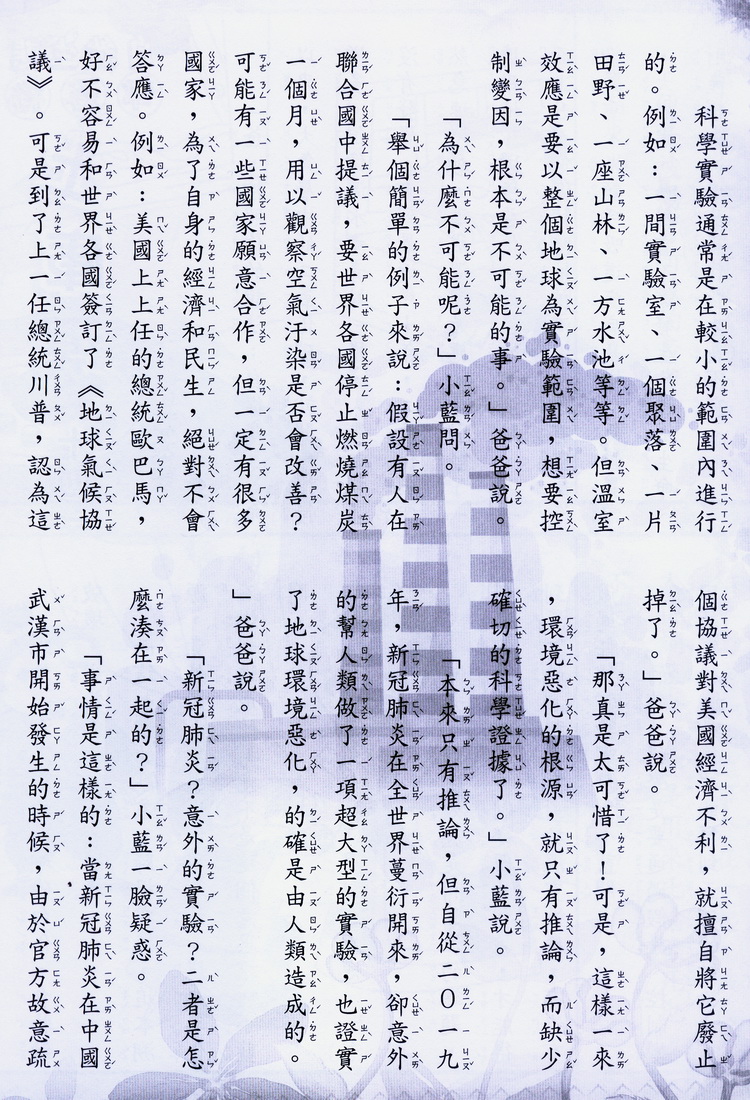 科學實驗通常是在較小的範圍內進行
的。例如：一間實驗室、一個聚落、一片
田野、一座山林、一方水池等等。但溫室
效應是要以整個地球為實驗範圍，想要控
制變因，根本是不可能的事。」爸爸說。
「為什麼不可能呢？」小藍問。
「舉個簡單的例子來說：假設有人在
聯合國中提議，要世界各國停止燃燒煤炭
一個月，用以觀察空氣汙染是否會改善？
可能有一些國家願意合作，但一定有很多
國家，為了自身的經濟和民生，絕對不會
答應。例如：美國上上任的總統歐巴馬，
好不容易和世界各國簽訂了《地球氣候協
議》。可是到了上一任總統川普，認為這
個協議對美國經濟不利，就擅自將它廢止
掉了。」爸爸說。
「那真是太可惜了！可是，這樣一來
，環境惡化的根源，就只有推論，而缺少
確切的科學證據了。」小藍說。
「本來只有推論，但自從二０一九
年，新冠肺炎在全世界蔓衍開來，卻意外
的幫人類做了一項超大型的實驗，也證實
了地球環境惡化，的確是由人類造成的。
」爸爸說。
「新冠肺炎？意外的實驗？二者是怎
麼湊在一起的？」小藍一臉疑惑。
「事情是這樣的：當新冠肺炎在中國
武漢市開始發生的時候，由於官方故意疏